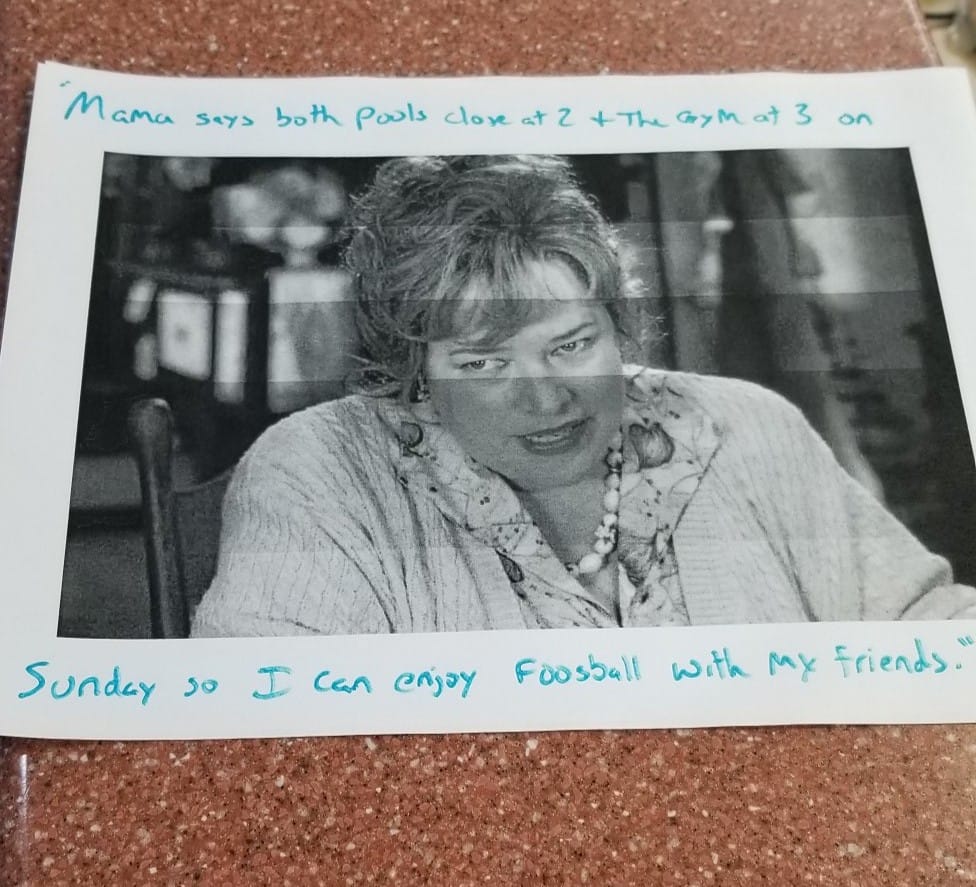 "Mama says both pools close at 2 + The Gym at 3 on
Sunday so I can enjoy Foosball with my friends."